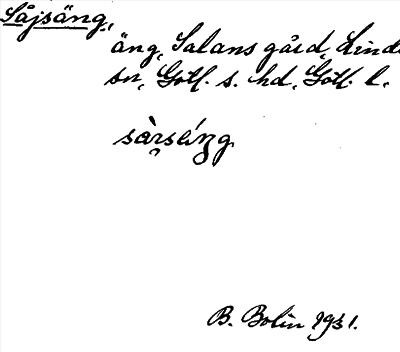 Såjsäng,
äng, Salans gård, Linde
sn, Gotl. s. hd, Gotl. l.
sàrséng
B. Bolin 1931.